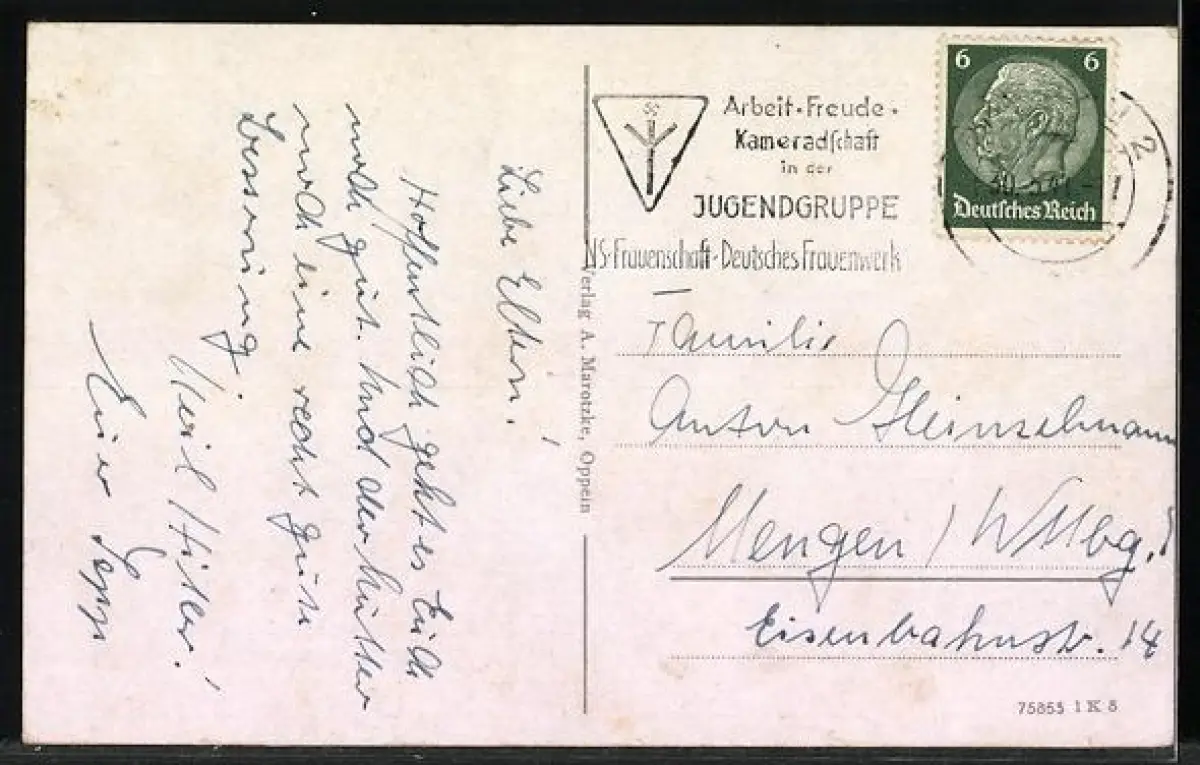 Liebe Eltern!
Hoffentlich geht es Euch
noch gut. Und der Mutter
noch eine recht gute
Besserung.
Heil Hitler!
Euer Sepp
Verlag A. Marotzke, Oppeln
Arbeit · Freude ·
Kameradschaft
in der
JUGENDGRUPPE
NS-Frauenschaft · Deutsches Frauenwerk
6 6
Deutsches Reich
2
Familie
Anton Heinzelmann
Mengen / Wttbg.
Eisenbahnstr. 14
75855 1 K 8